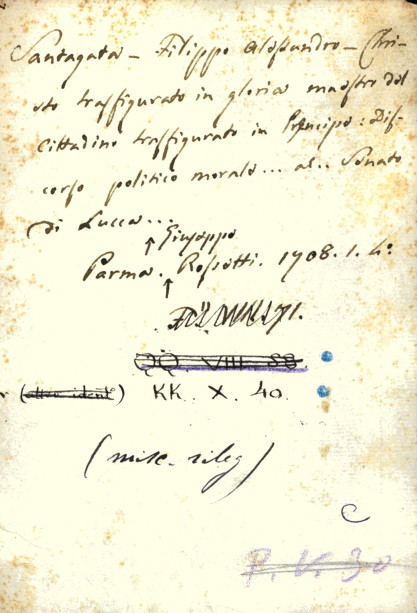 Santagata - Filippo Alessandro - Chri-
sto traffigurato in gloria maestro del
cittadino traffigurato in Principe: Dis-
corso politico morale... al.. Senato
di Lucca...
Giuseppe
Parma. Rossetti. 1708. 1. 4:
QQ VIII 88
(altro ident) KK. X. 40.
(misc. rileg)
C
P. V. 30